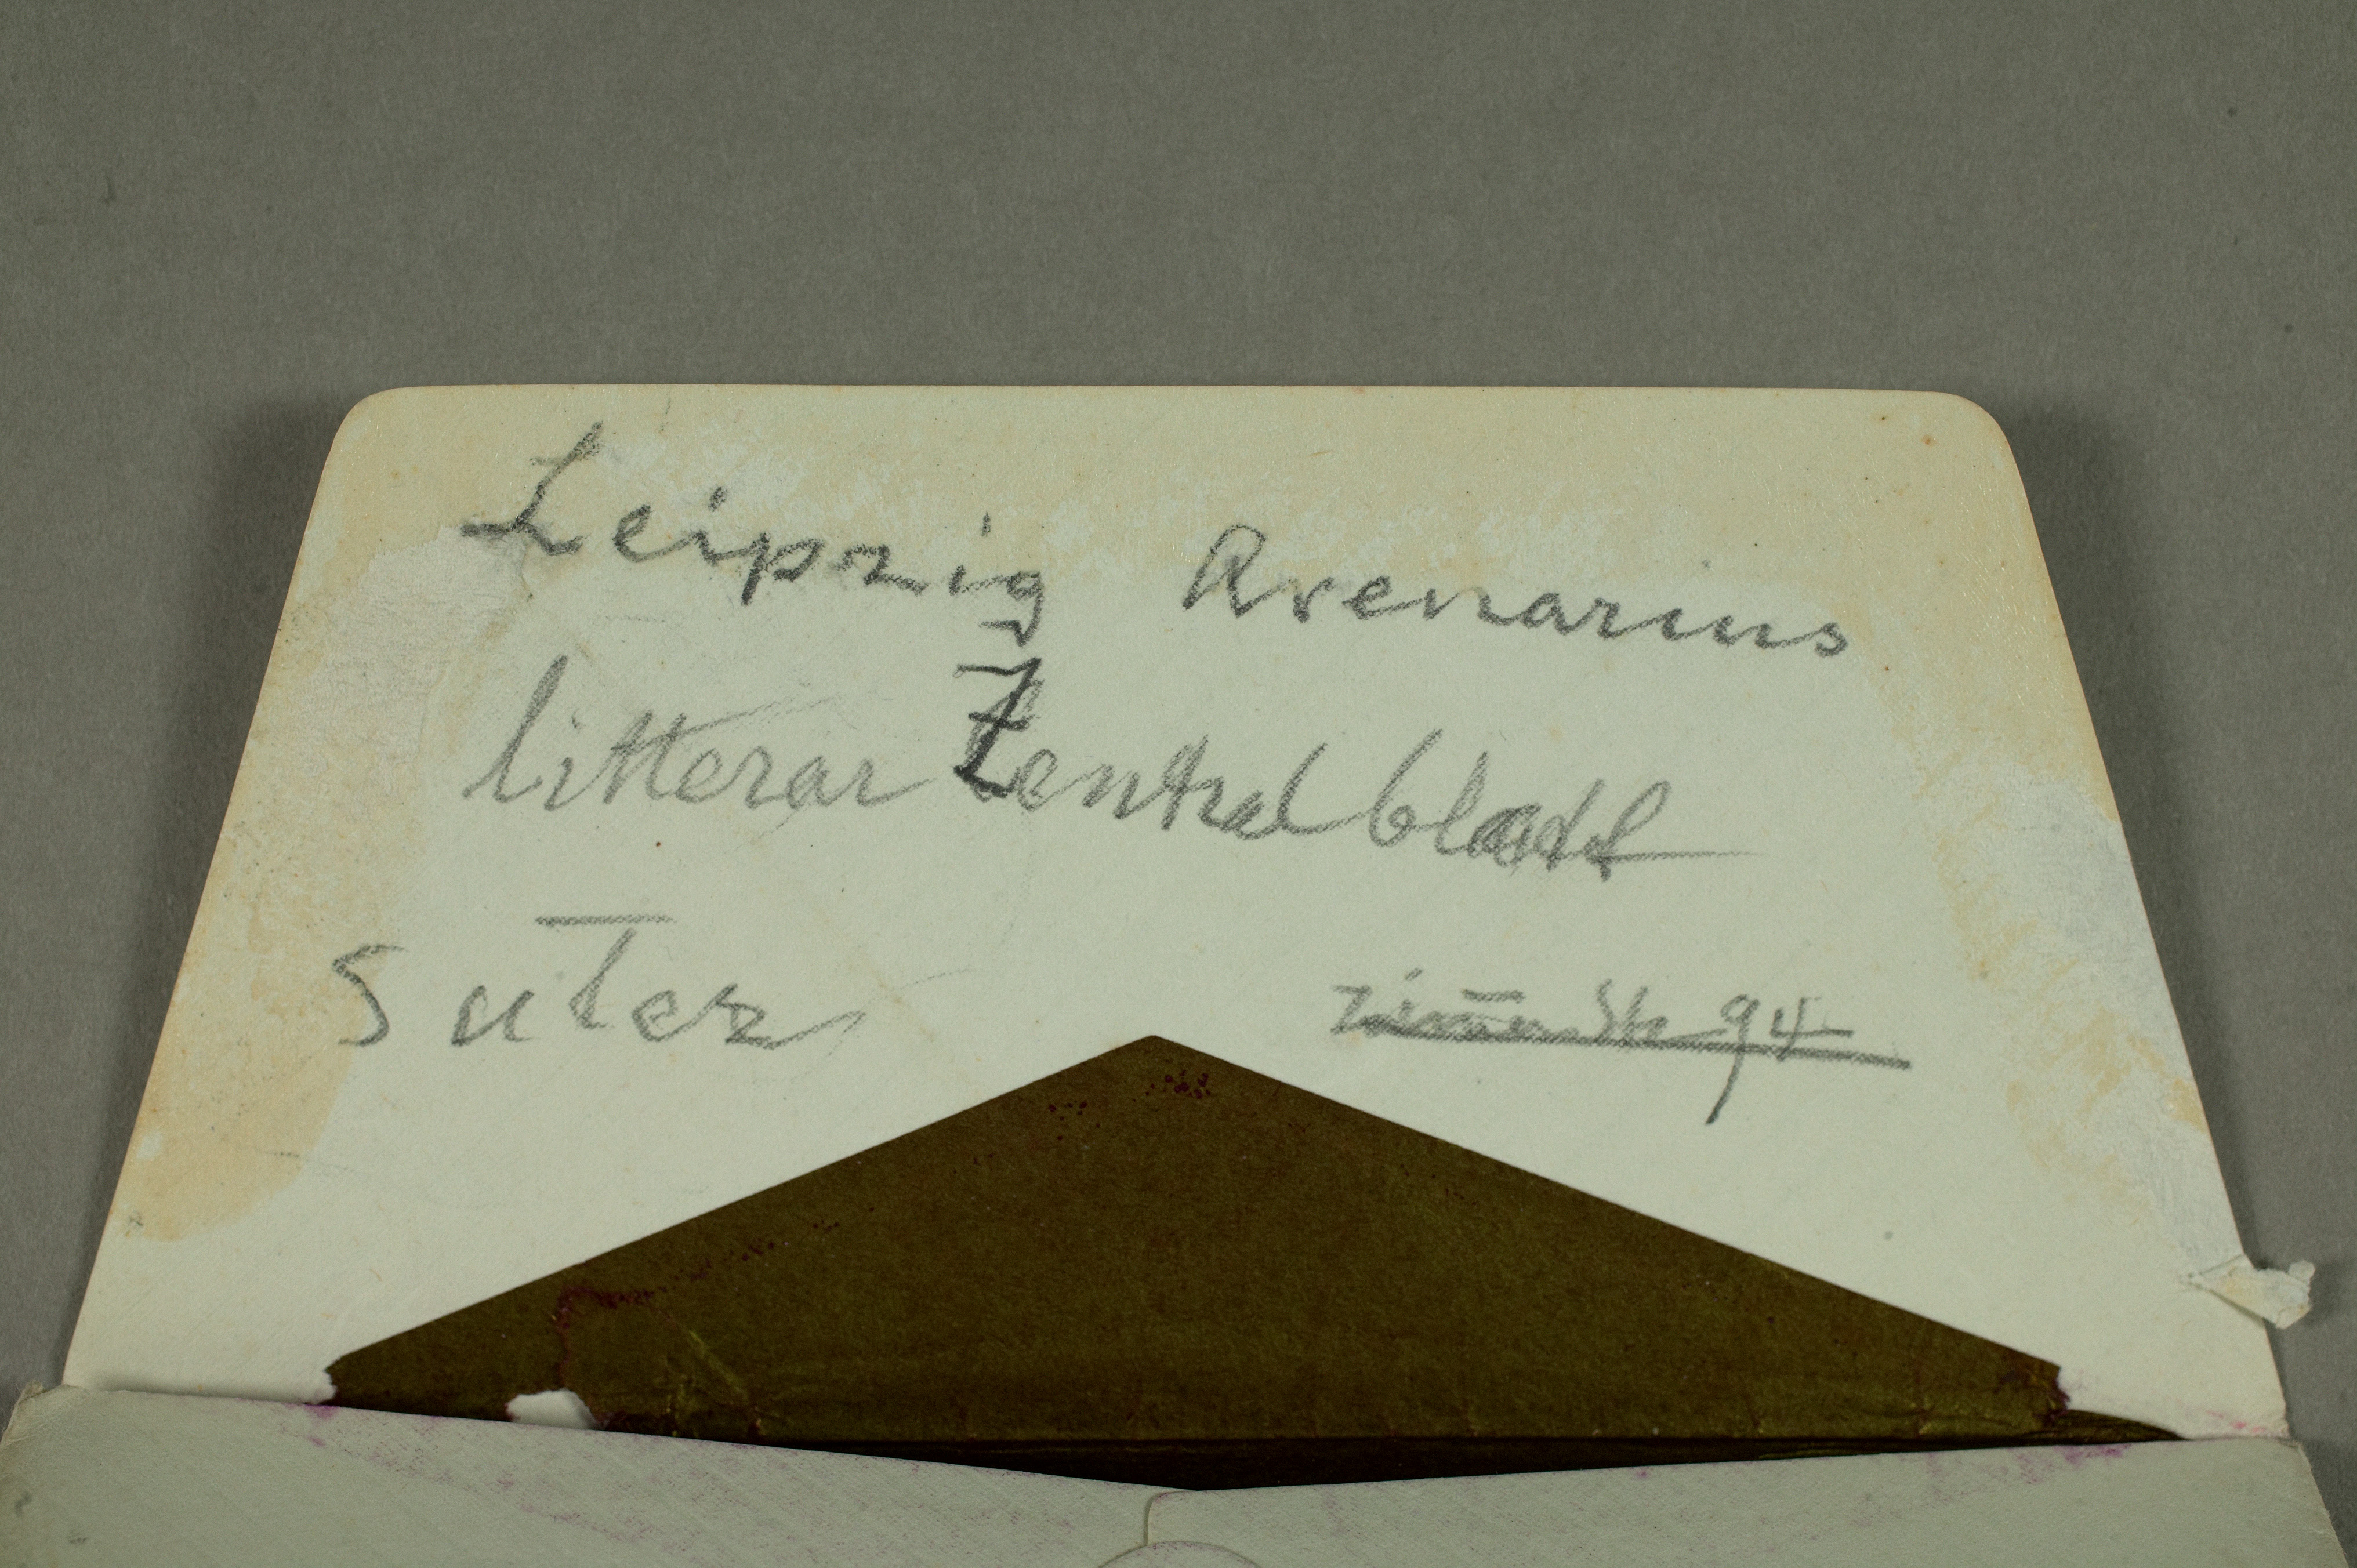 Leipzig Avenarius
litterar Zentralblatt
Suter
94